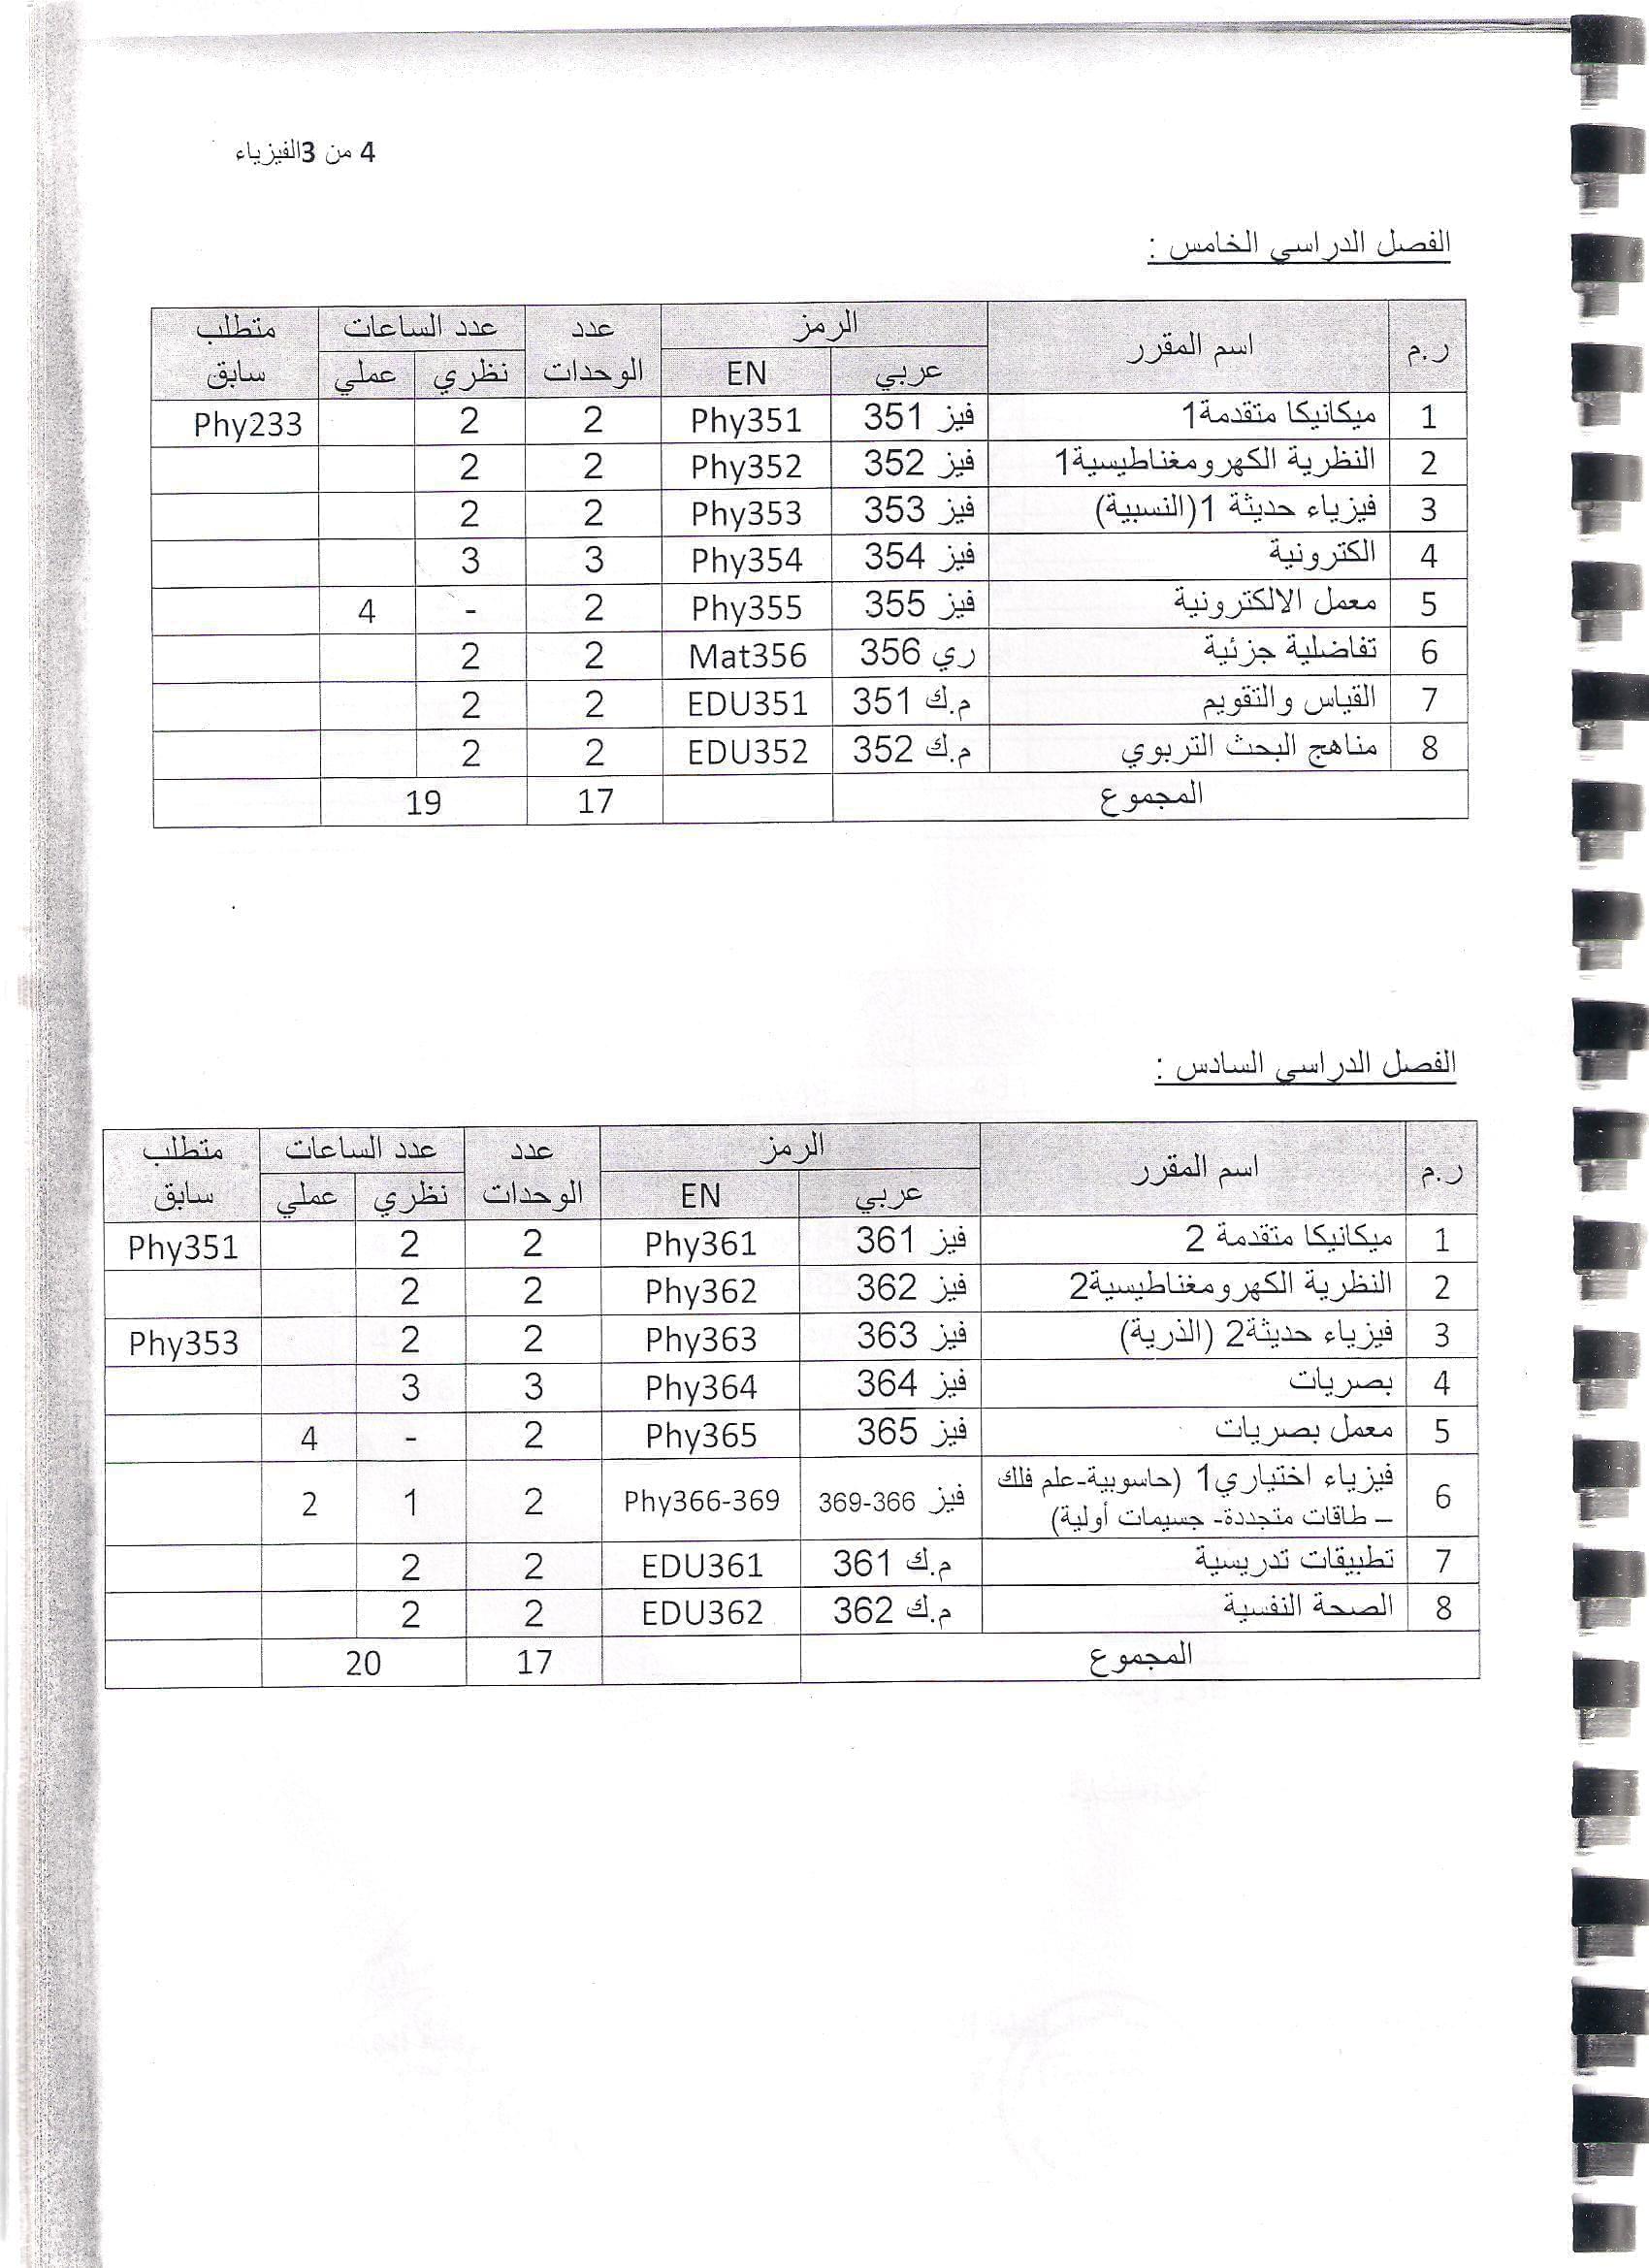 4 من 3الفيزياء
الفصل الدراسي الخامس :
ر.م اسم المقرر الرمز عدد الوحدات عدد الساعات متطلب سابق
عربي EN نظري عملي
1 ميكانيكا متقدمة1 فيز 351 Phy351 2 2 Phy233
2 النظرية الكهرومغناطيسية1 فيز 352 Phy352 2 2
3 فيزياء حديثة 1(النسبية) فيز 353 Phy353 2 2
4 الكترونية فيز 354 Phy354 3 3
5 معمل الالكترونية فيز 355 Phy355 2 - 4
6 تفاضلية جزئية ري 356 Mat356 2 2
7 القياس والتقويم م.ك 351 EDU351 2 2
8 مناهج البحث التربوي م.ك 352 EDU352 2 2
المجموع 17 19
الفصل الدراسي السادس :
ر.م اسم المقرر الرمز عدد الوحدات عدد الساعات متطلب سابق
عربي EN نظري عملي
1 ميكانيكا متقدمة 2 فيز 361 Phy361 2 2 Phy351
2 النظرية الكهرومغناطيسية2 فيز 362 Phy362 2 2
3 فيزياء حديثة2 (الذرية) فيز 363 Phy363 2 2 Phy353
4 بصريات فيز 364 Phy364 3 3
5 معمل بصريات فيز 365 Phy365 2 - 4
6 فيزياء اختياري1 (حاسوبية-علم فلك
– طاقات متجددة- جسيمات أولية) فيز 366-369 Phy366-369 2 1 2
7 تطبيقات تدريسية م.ك 361 EDU361 2 2
8 الصحة النفسية م.ك 362 EDU362 2 2
المجموع 17 20